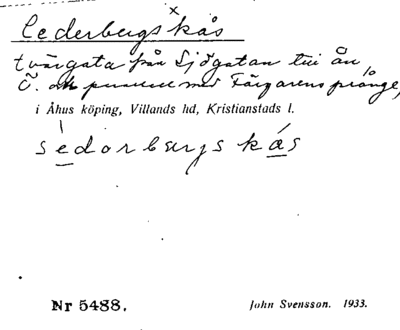 Cederbergs kås
tvärgata från Sjögatan till ån
Ö. om parallell med Färgarens prånge,
i Åhus köping, Villands hd, Kristianstads l.
sedarbærjs kás
Nr 5488.
John Svensson. 1933.